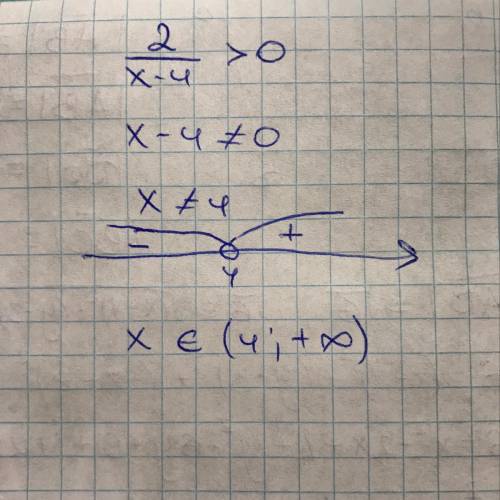 2/(x-4) > 0
x-4 ≠ 0
x ≠ 4
- +
4
x ∈ (4; +∞)